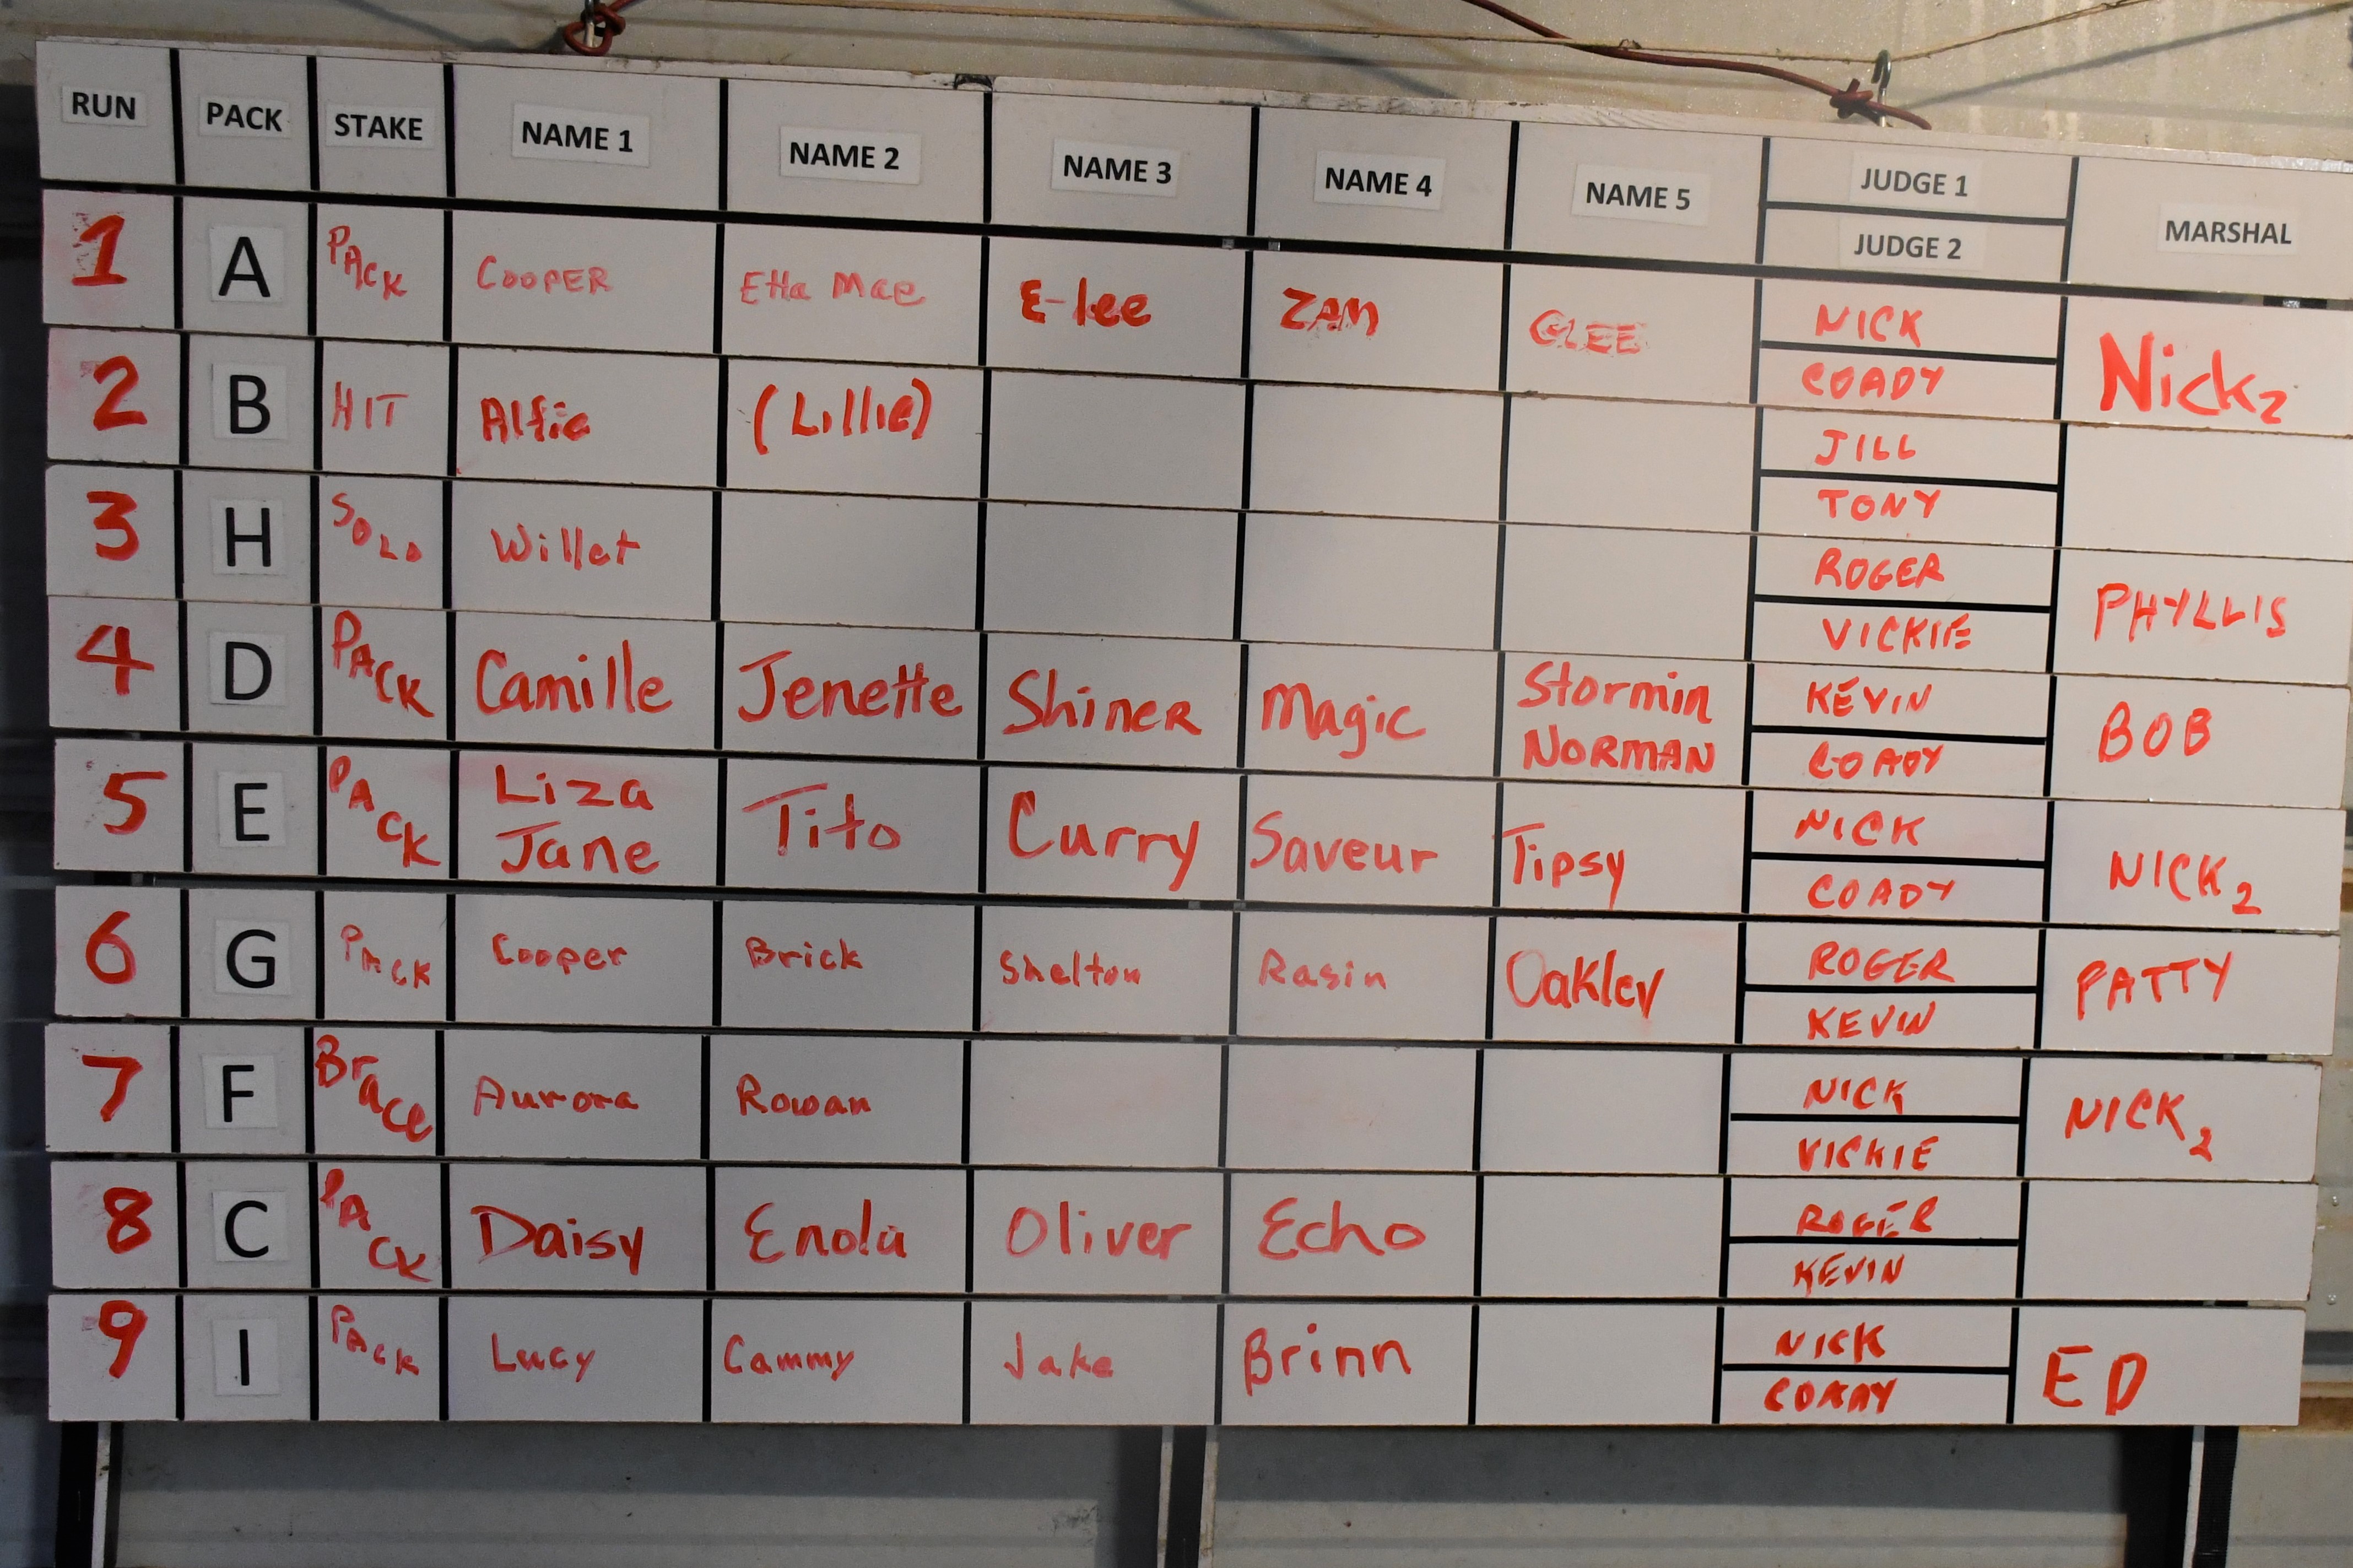 RUN PACK STAKE NAME 1 NAME 2 NAME 3 NAME 4 NAME 5 JUDGE 1 MARSHAL
JUDGE 2
1 A PACK COOPER Etta Mae E-lee ZAM GLEE NICK Nick2
COADY
2 B HIT Alfie (Lillie) JILL
TONY
3 H SOLO Willet ROGER PHYLLIS
VICKIE
4 D PACK Camille Jenette Shiner Magic Stormin KEVIN BOB
NORMAN COADY
5 E PACK Liza Tito Curry Saveur Tipsy NICK NICK2
Jane COADY
6 G PACK Cooper Brick Shelton Rasin Oakley ROGER PATTY
KEVIN
7 F Brace Aurora Rowan NICK NICK2
VICKIE
8 C PACK Daisy Enola Oliver Echo ROGER
KEVIN
9 I PACK Lucy Cammy Jake Brinn NICK ED